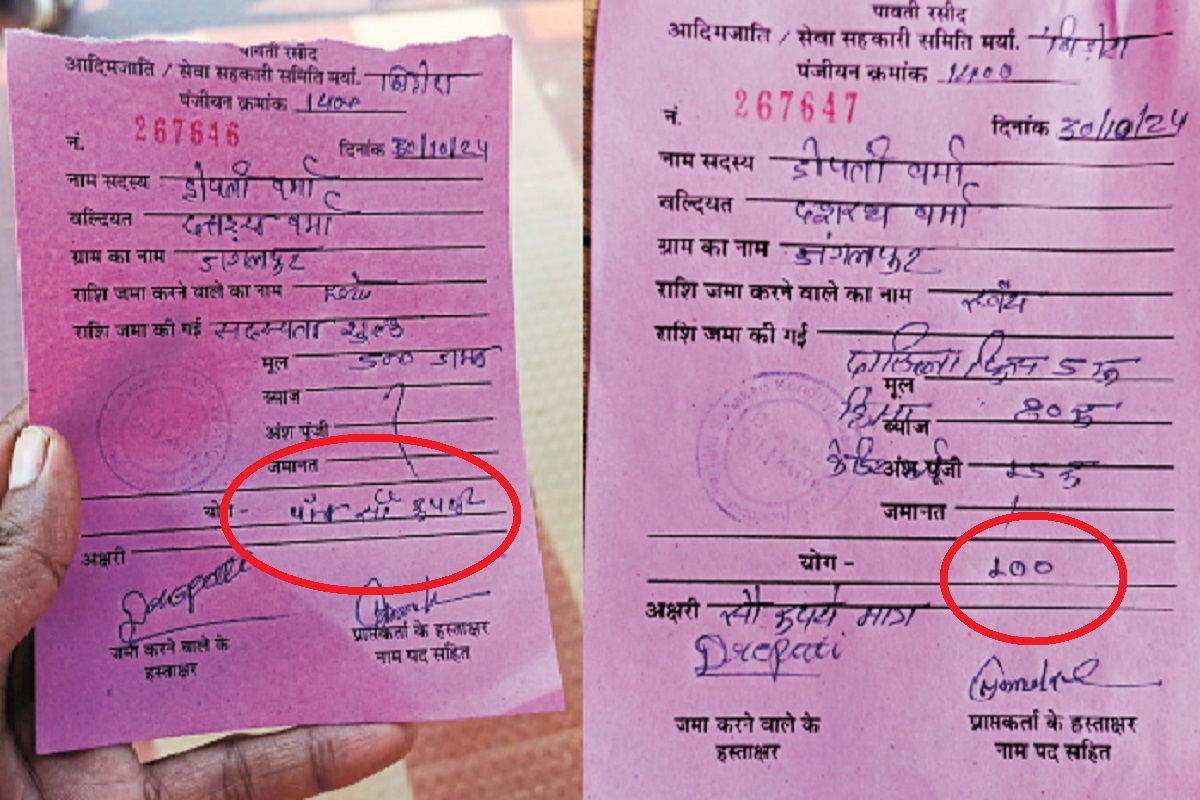 पावती रसीद
आदिमजाति / सेवा सहकारी समिति मर्या.
पंजीयन क्रमांक 1400
नं. 267646 दिनांक 30/10/24
नाम सदस्य दीपली वर्मा
वल्दियत वर्मा
ग्राम का नाम जंगलपुर
राशि जमा करने वाले का नाम
राशि जमा की गई सदस्यता शुल्क
मूल 500
ब्याज
अंश पूंजी
जमानत
योग - पाँच सौ रुपये
अक्षरी
Deepali
जमा करने वाले के
हस्ताक्षर
प्राप्तकर्ता के हस्ताक्षर
नाम पद सहित
पावती रसीद
आदिमजाति / सेवा सहकारी समिति मर्या.
पंजीयन क्रमांक 1400
नं. 267647 दिनांक 30/10/24
नाम सदस्य दीपली वर्मा
वल्दियत दशरथ वर्मा
ग्राम का नाम जंगलपुर
राशि जमा करने वाले का नाम स्वयं
राशि जमा की गई
मूल 5 रु
ब्याज
अंश पूंजी
जमानत
योग - 100
अक्षरी सौ रुपये मात्र
Deepali
जमा करने वाले के
हस्ताक्षर
प्राप्तकर्ता के हस्ताक्षर
नाम पद सहित